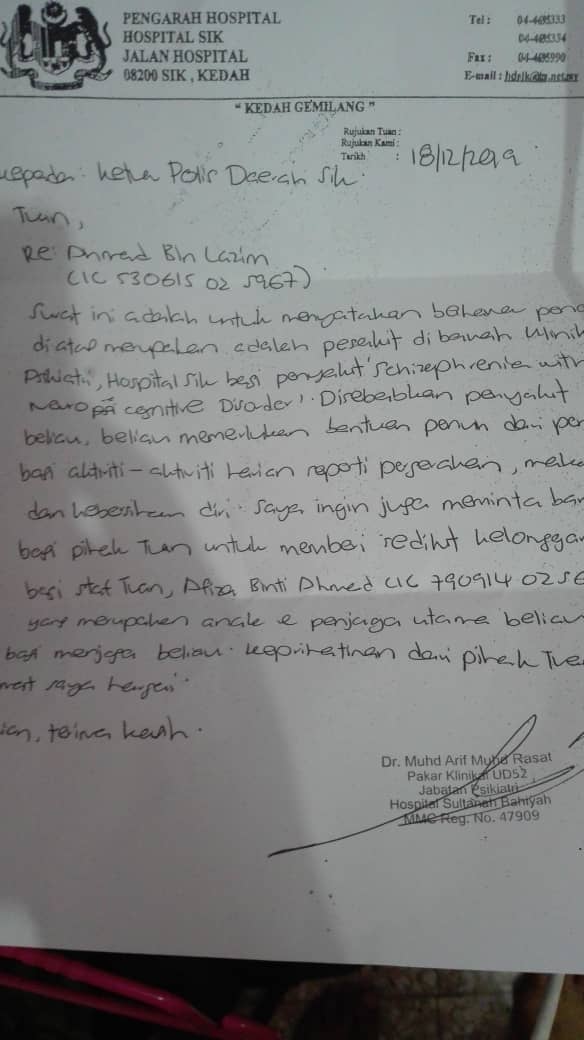 PENGARAH HOSPITAL
HOSPITAL SIK
JALAN HOSPITAL
08200 SIK, KEDAH
Tel :
Fax :
E-mail :
" KEDAH GEMILANG "
Rujukan Tuan :
Rujukan Kami :
Tarikh : 18/12/2019
Kepada : Ketua Polis Daerah Sik.
Tuan,
Re: Ahmad Bin Lazim
(IC 530615 02 5967)
Surat ini adalah untuk menyatakan bahawa
diatas merupakan adalah pesakit di bawah Klinik
Psikiatri, Hospital Sik bagi penyakit 'Schizophrenia with
Cognitive Disorder'. Disebabkan penyakit
beliau, beliau memerlukan bantuan penuh dari
bagi aktiviti-aktiviti harian seperti
dan kebersihan diri. Saya ingin juga meminta
bagi pihak Tuan untuk memberi sedikit
bagi staf Tuan, Afiza Binti Ahmad (IC 790914 02
yang merupakan anak & penjaga utama beliau
bagi menjaga beliau. Keprihatinan dari pihak
saya
terima kasih.
Dr. Muhd Arif Muhd Rasat
Pakar Klinikal UD52
Jabatan Psikiatri
Hospital Sultanah Bahiyah
MMC Reg. No. 47909